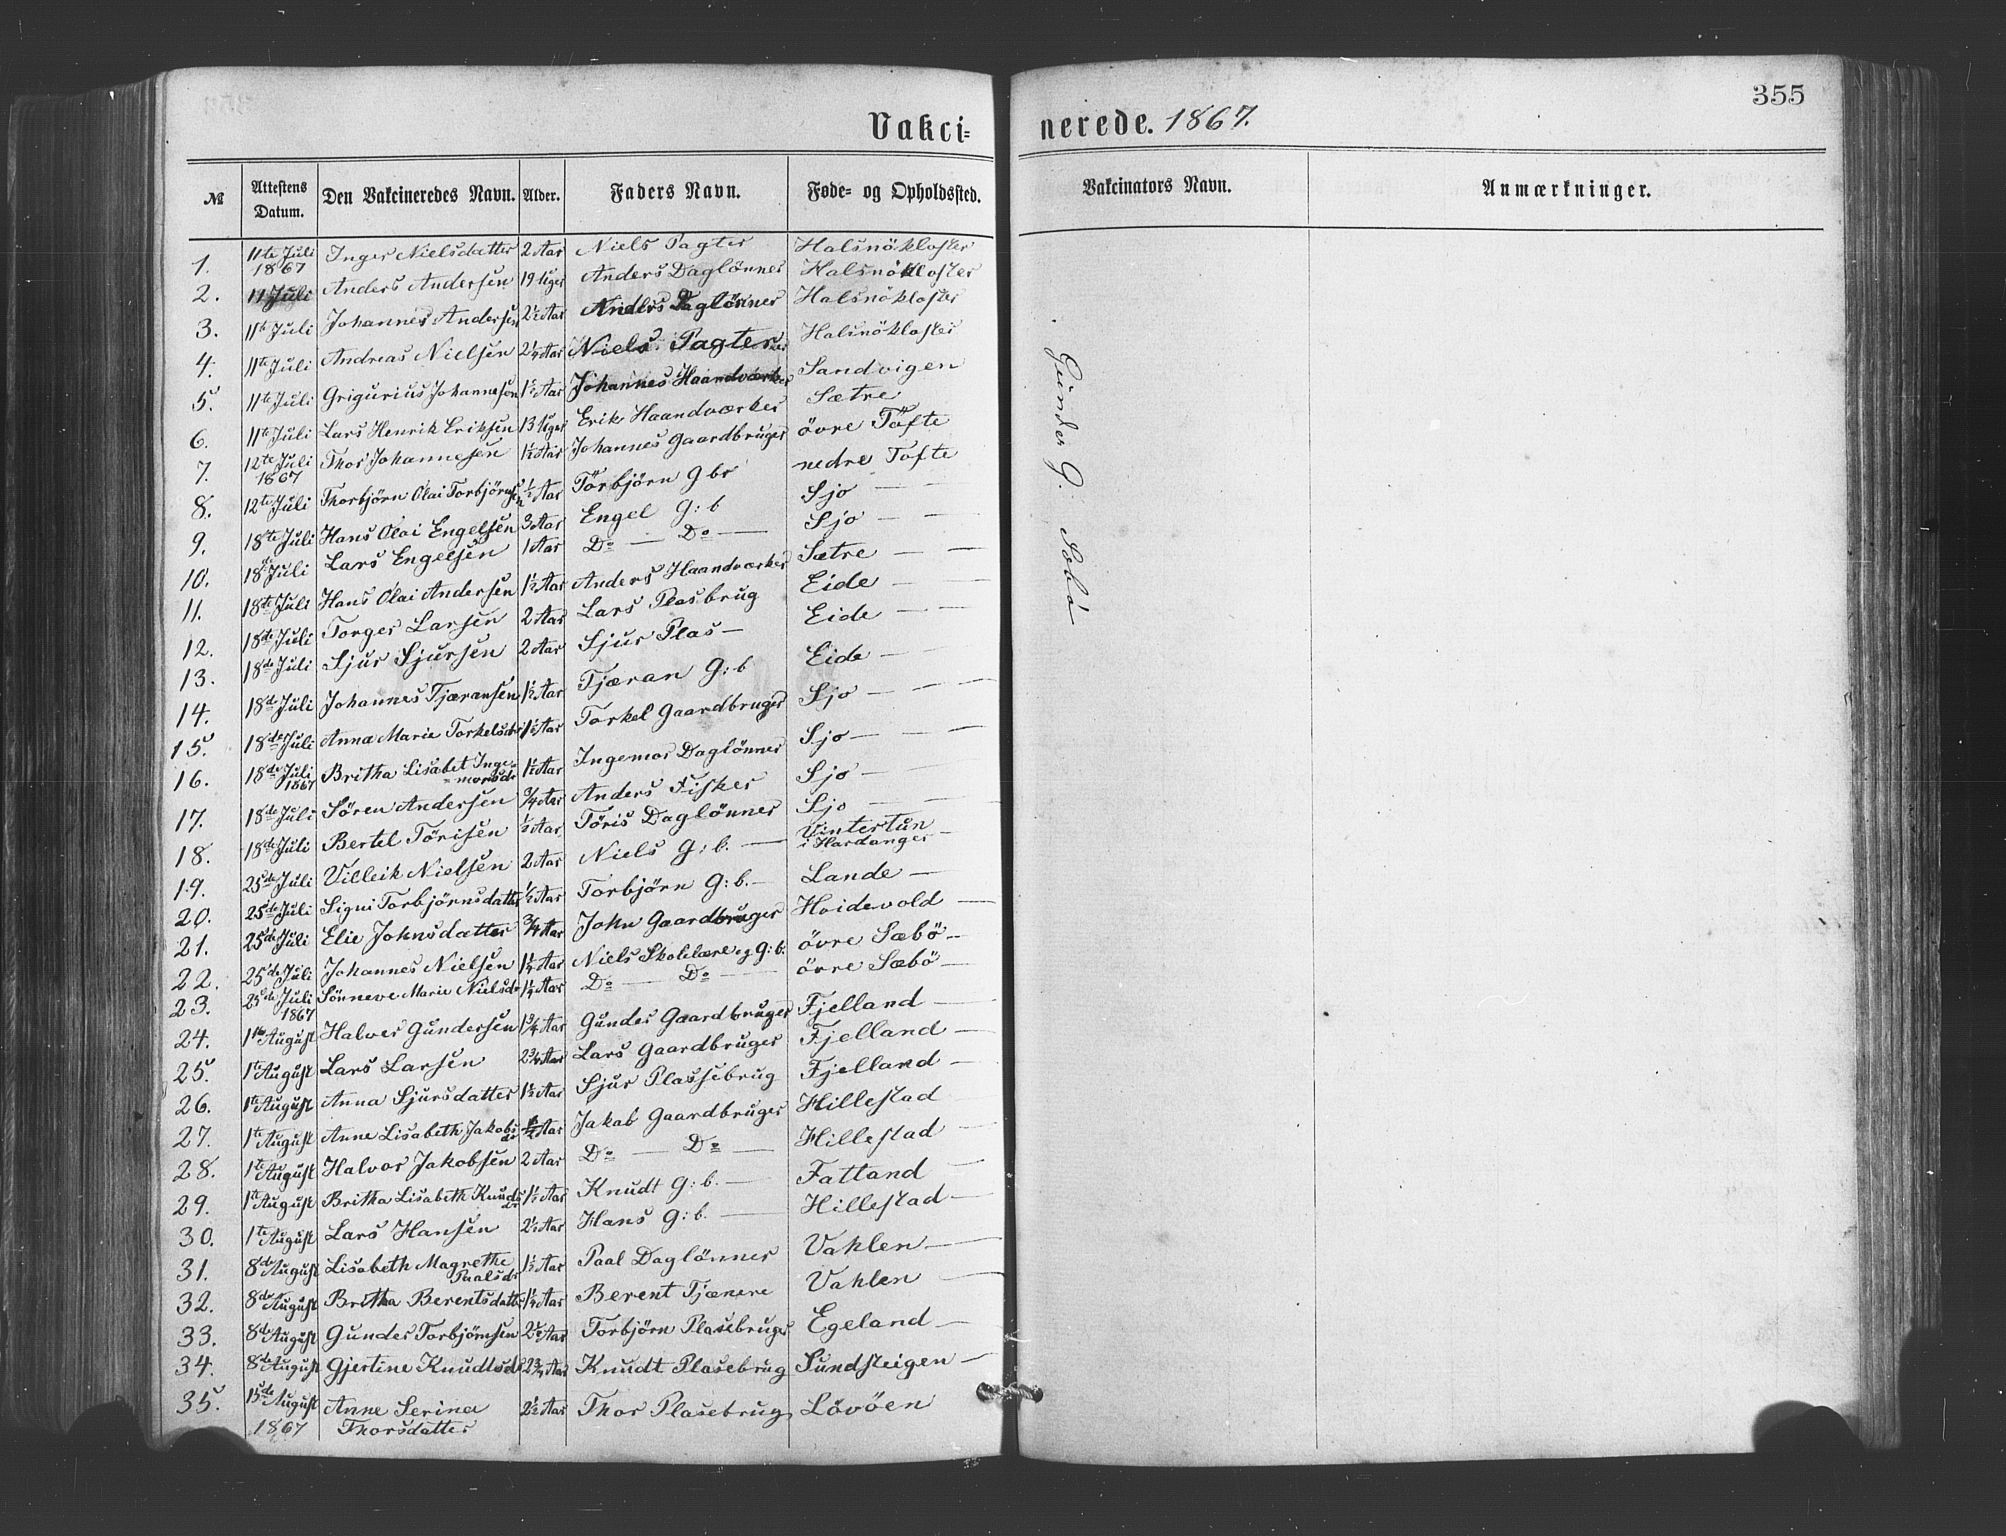 355
Vakci=nerede. 1867.
№ Attestens Datum. Den Vakcineredes Navn. Alder. Faders Navn. Føde- og Opholdssted. Vakcinators Navn. Anmærkninger.
1. 11te Juli 1867 Inger Nielsdatter 2 Aar Niels Pagter Halsnökloster
2. 11 Juli Anders Andersen 19 Uger Anders Daglönner Halsnökloster
3. 11te Juli Johannes Andersen 2½ Aar Anders Daglönner Halsnökloster
4. 11te Juli Andreas Nielsen 2¼ Aar Niels Pagter Halsnökloster
5. 11te Juli Grigurius Johannesen 1½ Aar Johannes Haandværker Sandvigen
6. 11te Juli Lars Henrik Eriksen 13 Uger Erik Haandværker Sætre
7. 12te Juli 1867 Thor Johannesen 1½ Aar Johannes Gaardbruger övre Tofte
8. 12te Juli Thorbjörn Olai Torbjörnsen ½ Aar Torbjörn Gbr nedre Tofte
9. 18de Juli Hans Olai Engelsen 3 Aar Engel G:b Sjo — —
10. 18de Juli Lars Engelsen 1 Aar Do — Do — Sjo — —
11. 18de Juli Hans Olai Andersen 1½ Aar Anders Haandværker Sætre — —
12. 18de Juli Torger Larsen 2 Aar Lars Plasbrug Eide — —
13. 18de Juli Sjur Sjursen 2 Aar Sjur Plas — Eide — —
14. 18de Juli Johannes Tjæransen 1½ Aar Tjæran G:b Eide — —
15. 18de Juli Anna Marie Torkelsdtr 1½ Aar Torkel Gaardbruger Sjo — — —
16. 18de Juli 1867 Britha Lisabet Inge=morsdr 1½ Aar Ingemor Daglönner Sjo — — —
17. 18de Juli Sören Andersen ¾ Aar Anders Fisker Sjo — —
18. 18de Juli Bertel Törisen ½ Aar Töris Daglönner Sjo — —
19. 25de Juli Villeik Nielsen 2 Aar Niels G:b. — Vintertun i Hardanger —
20. 25de Juli Signi Torbjörnsdatter ½ Aar Torbjörn G:b. — Lande —
21. 25de Juli Elie Johnsdatter ¾ Aar John Gaardbruger Hoidevold —
22. 25de Juli Johannes Nielsen 1¼ Aar Niels Skolelære og G:b. övre Sæbö —
23. 25de Juli 1867 Sönneve Marie Nielsdr 1¼ Aar Do — Do — övre Sæbö —
24. 1te August Halver Gundersen 1¾ Aar Gunder Gaardbruger Fjelland —
25. 1te August Lars Larsen 2¾ Aar Lars Gaardbruger Fjelland —
26. 1te August Anna Sjursdatter 1½ Aar Sjur Plassebrug Fjelland —
27. 1te August Anne Lisabeth Jakobsdr ½ Aar Jakob Gaardbruger Hillestad
28. 1te August Halvor Jakobsen 2 Aar Do — Do — Hillestad —
29. 1te August Britha Lisabeth Knudsdr 1½ Aar Knudt G:b. — Fatland —
30. 1te August Lars Hansen 2½ Aar Hans G:b. — Hillestad —
31. 8de August Lisabeth Magrethe Paalsdr 1½ Aar Paal Daglönner Vahlen —
32. 8de August Britha Berentsdatter 1¼ Aar Berent Tjænere Vahlen —
33. 8de August Gunder Torbjörnsen Aar Torbjörn Plasebruger Egeland —
34. 8de August Gjertine Knudtsdr 2¾ Aar Knudt Plasebrug Sundsteigen —
35. 15de August 1867 Anne Serina Thorsdatter 2½ Aar Thor Plasebrug Lövöen
Gunder G. Sebö